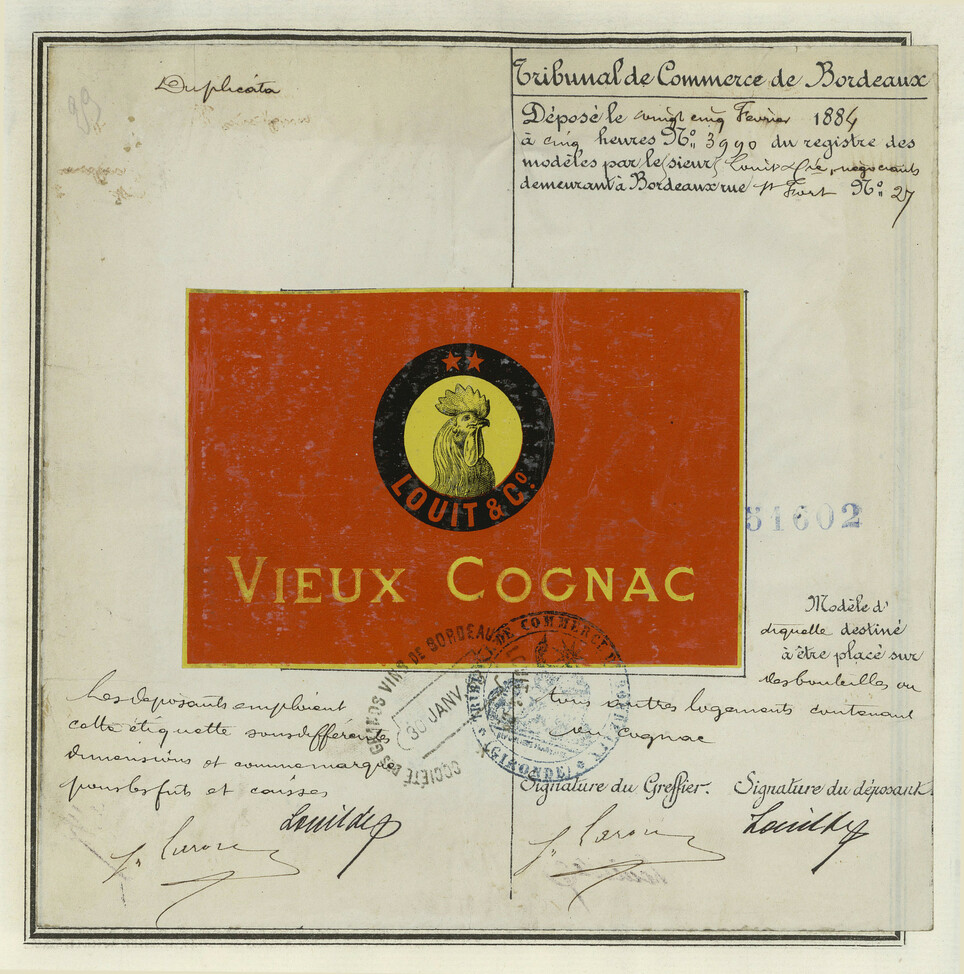 Duplicata
Tribunal de Commerce de Bordeaux
Déposé le vingt cinq Fevrier 1884
à cinq heures N° 3990 du registre des
modèles par le sieur Louit & Cie, négociants
demeurant à Bordeaux rue St Fort N° 27
LOUIT & Co.
VIEUX COGNAC
51602
Modèle d'
étiquette destiné
à être placé sur
des bouteilles ou
tous autres logements contenant
du Cognac
Les déposants emploient
cette étiquette sous différentes
dimensions et comme marque
pour les fûts et caisses
SOCIÉTÉ DES GRANDS VINS DE BORDEAUX
30 JANV
TRIBUNAL DE COMMERCE DE BORDEAUX
(GIRONDE)
Signature du Greffier. Signature du déposant.
Louit & Cie
Louit & Cie